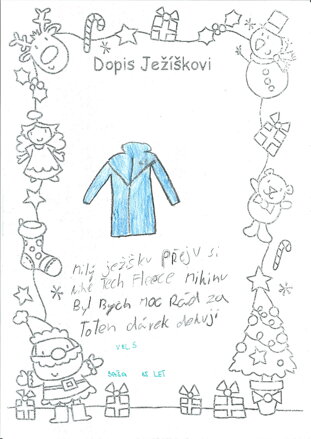 Dopis Ježíškovi
Milý ježíšku PŘEJU si
Nike Tech Fleece Mikinu
Byl Bych Moc Rád za
Toten dárek děkuji
VEL S
12 LET